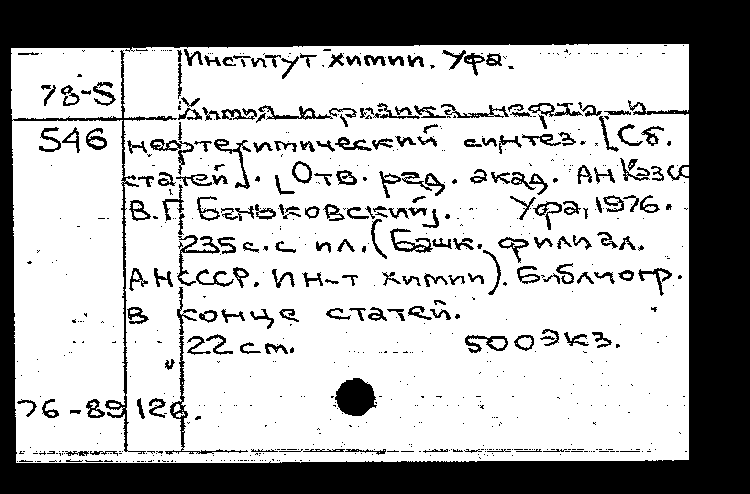 Институт химии. Уфа.
78-S
Химия и физика нефти и
546 нефтехимический синтез. [Сб.
статей]. [Отв. ред. акад. АН КазСС
В.Г. Беньковский]. Уфа, 1976.
235 с. с ил. (Башк. филиал.
АН СССР. Ин-т химии). Библиогр.
в конце статей.
22 cm. 500 экз.
76-89126.